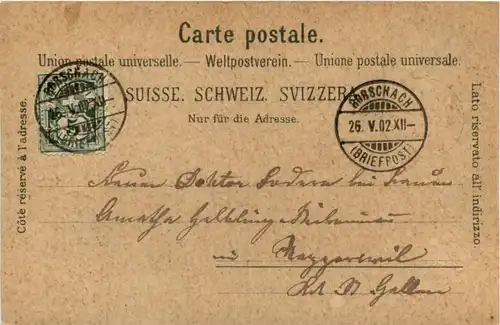 Carte postale.
Union postale universelle. — Weltpostverein. — Unione postale universale.
SUISSE. SCHWEIZ. SVIZZERA
Nur für die Adresse.
Côté réservé à l'adresse.
Lato riservato all' indirizzo.
RORSCHACH
RORSCHACH
26. V. 02 XII—
(BRIEFPOST)
Doktor bei
Agatha Helbling
in Rapperswil
Kt. St. Gallen